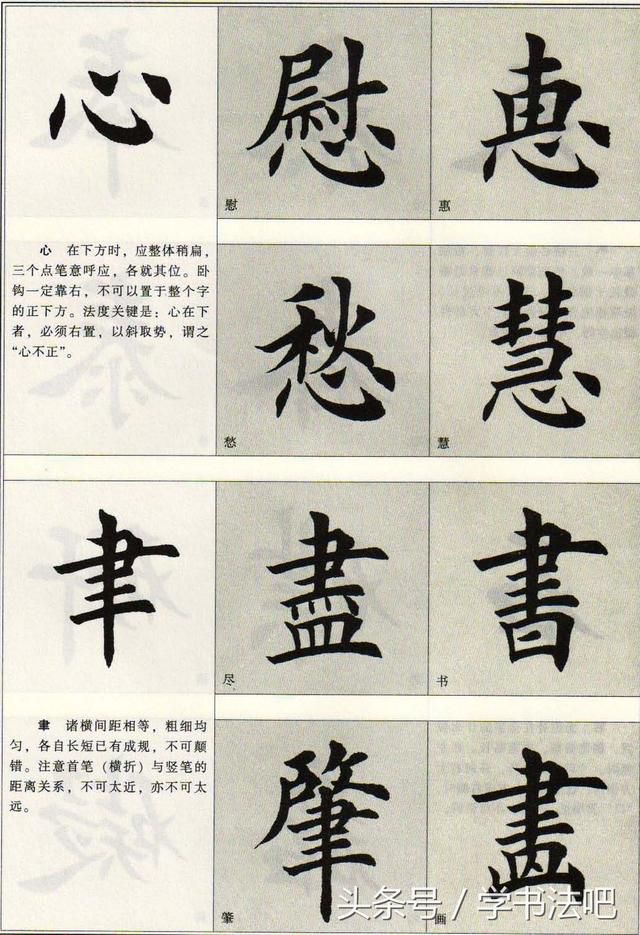 心
慰
惠
慰
惠
心 在下方时，应整体稍扁，
三个点笔意呼应，各就其位。卧
钩一定靠右，不可以置于整个字
的正下方。法度关键是：心在下
者，必须右置，以斜取势，谓之
“心不正”。
愁
慧
愁
慧
聿
盡
書
尽
书
聿 诸横间距相等，粗细均
匀，各自长短已有成规，不可颠
错。注意首笔（横折）与竖笔的
距离关系，不可太近，亦不可太
远。
肇
畫
肇
画
头条号 / 学书法吧